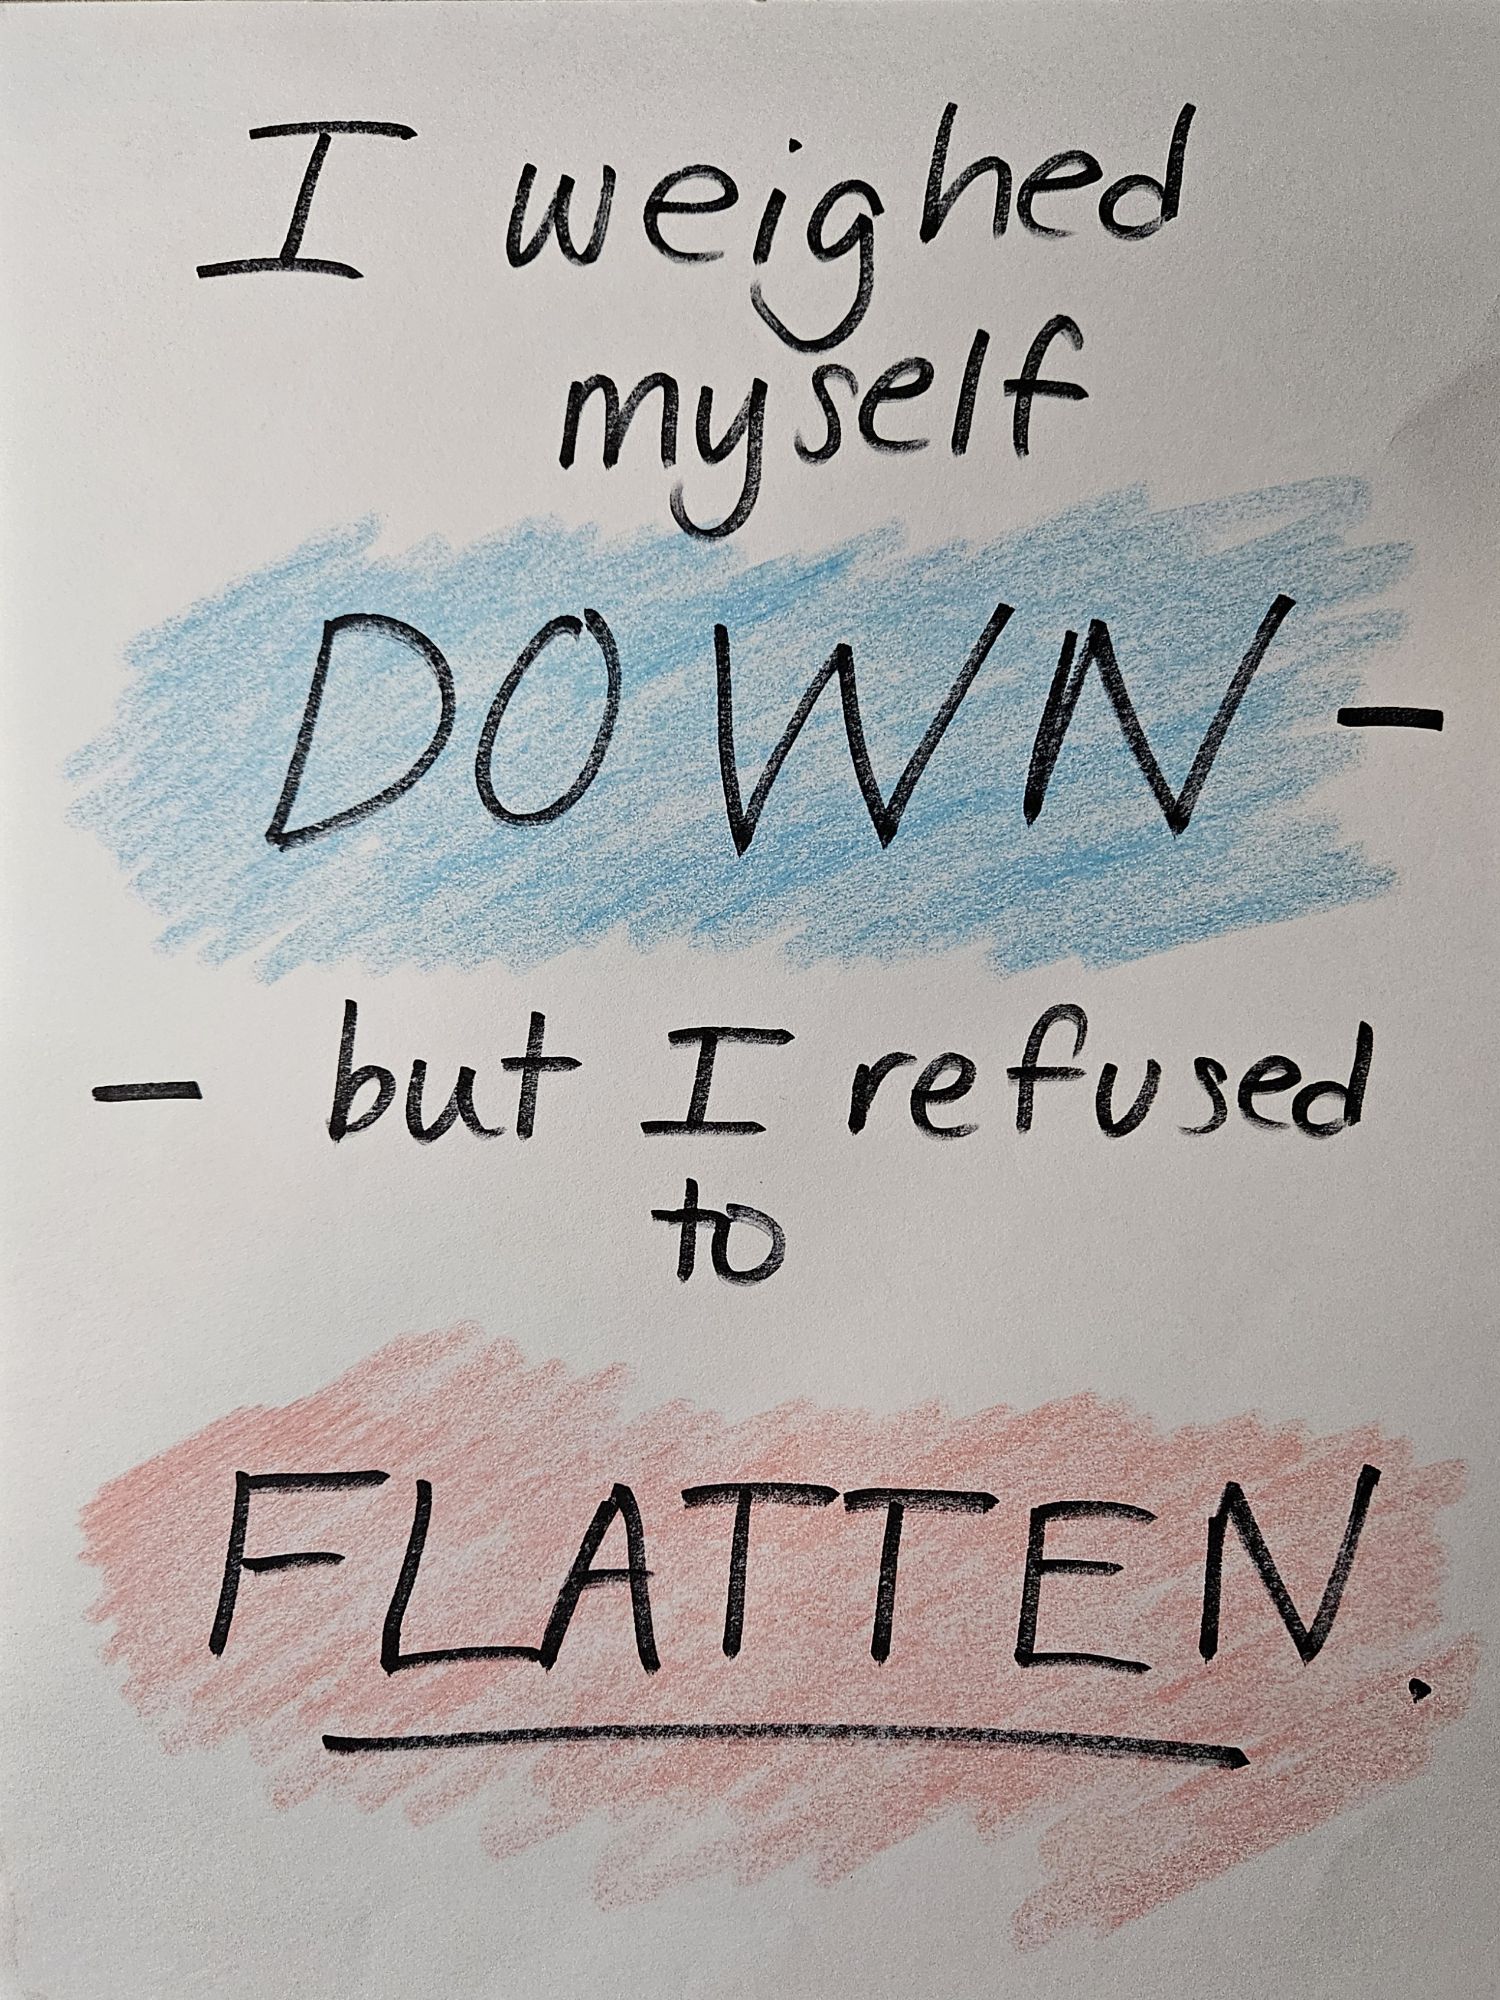 I weighed
myself
DOWN -
- but I refused
to
FLATTEN.